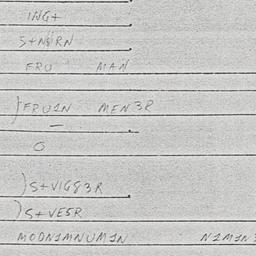 ING+
S+NRN
FRU MAN
)FRU1N MEN3R
O
)S+VIG83R
)S+VE5R
MOON1MNUM1N N1M1N3